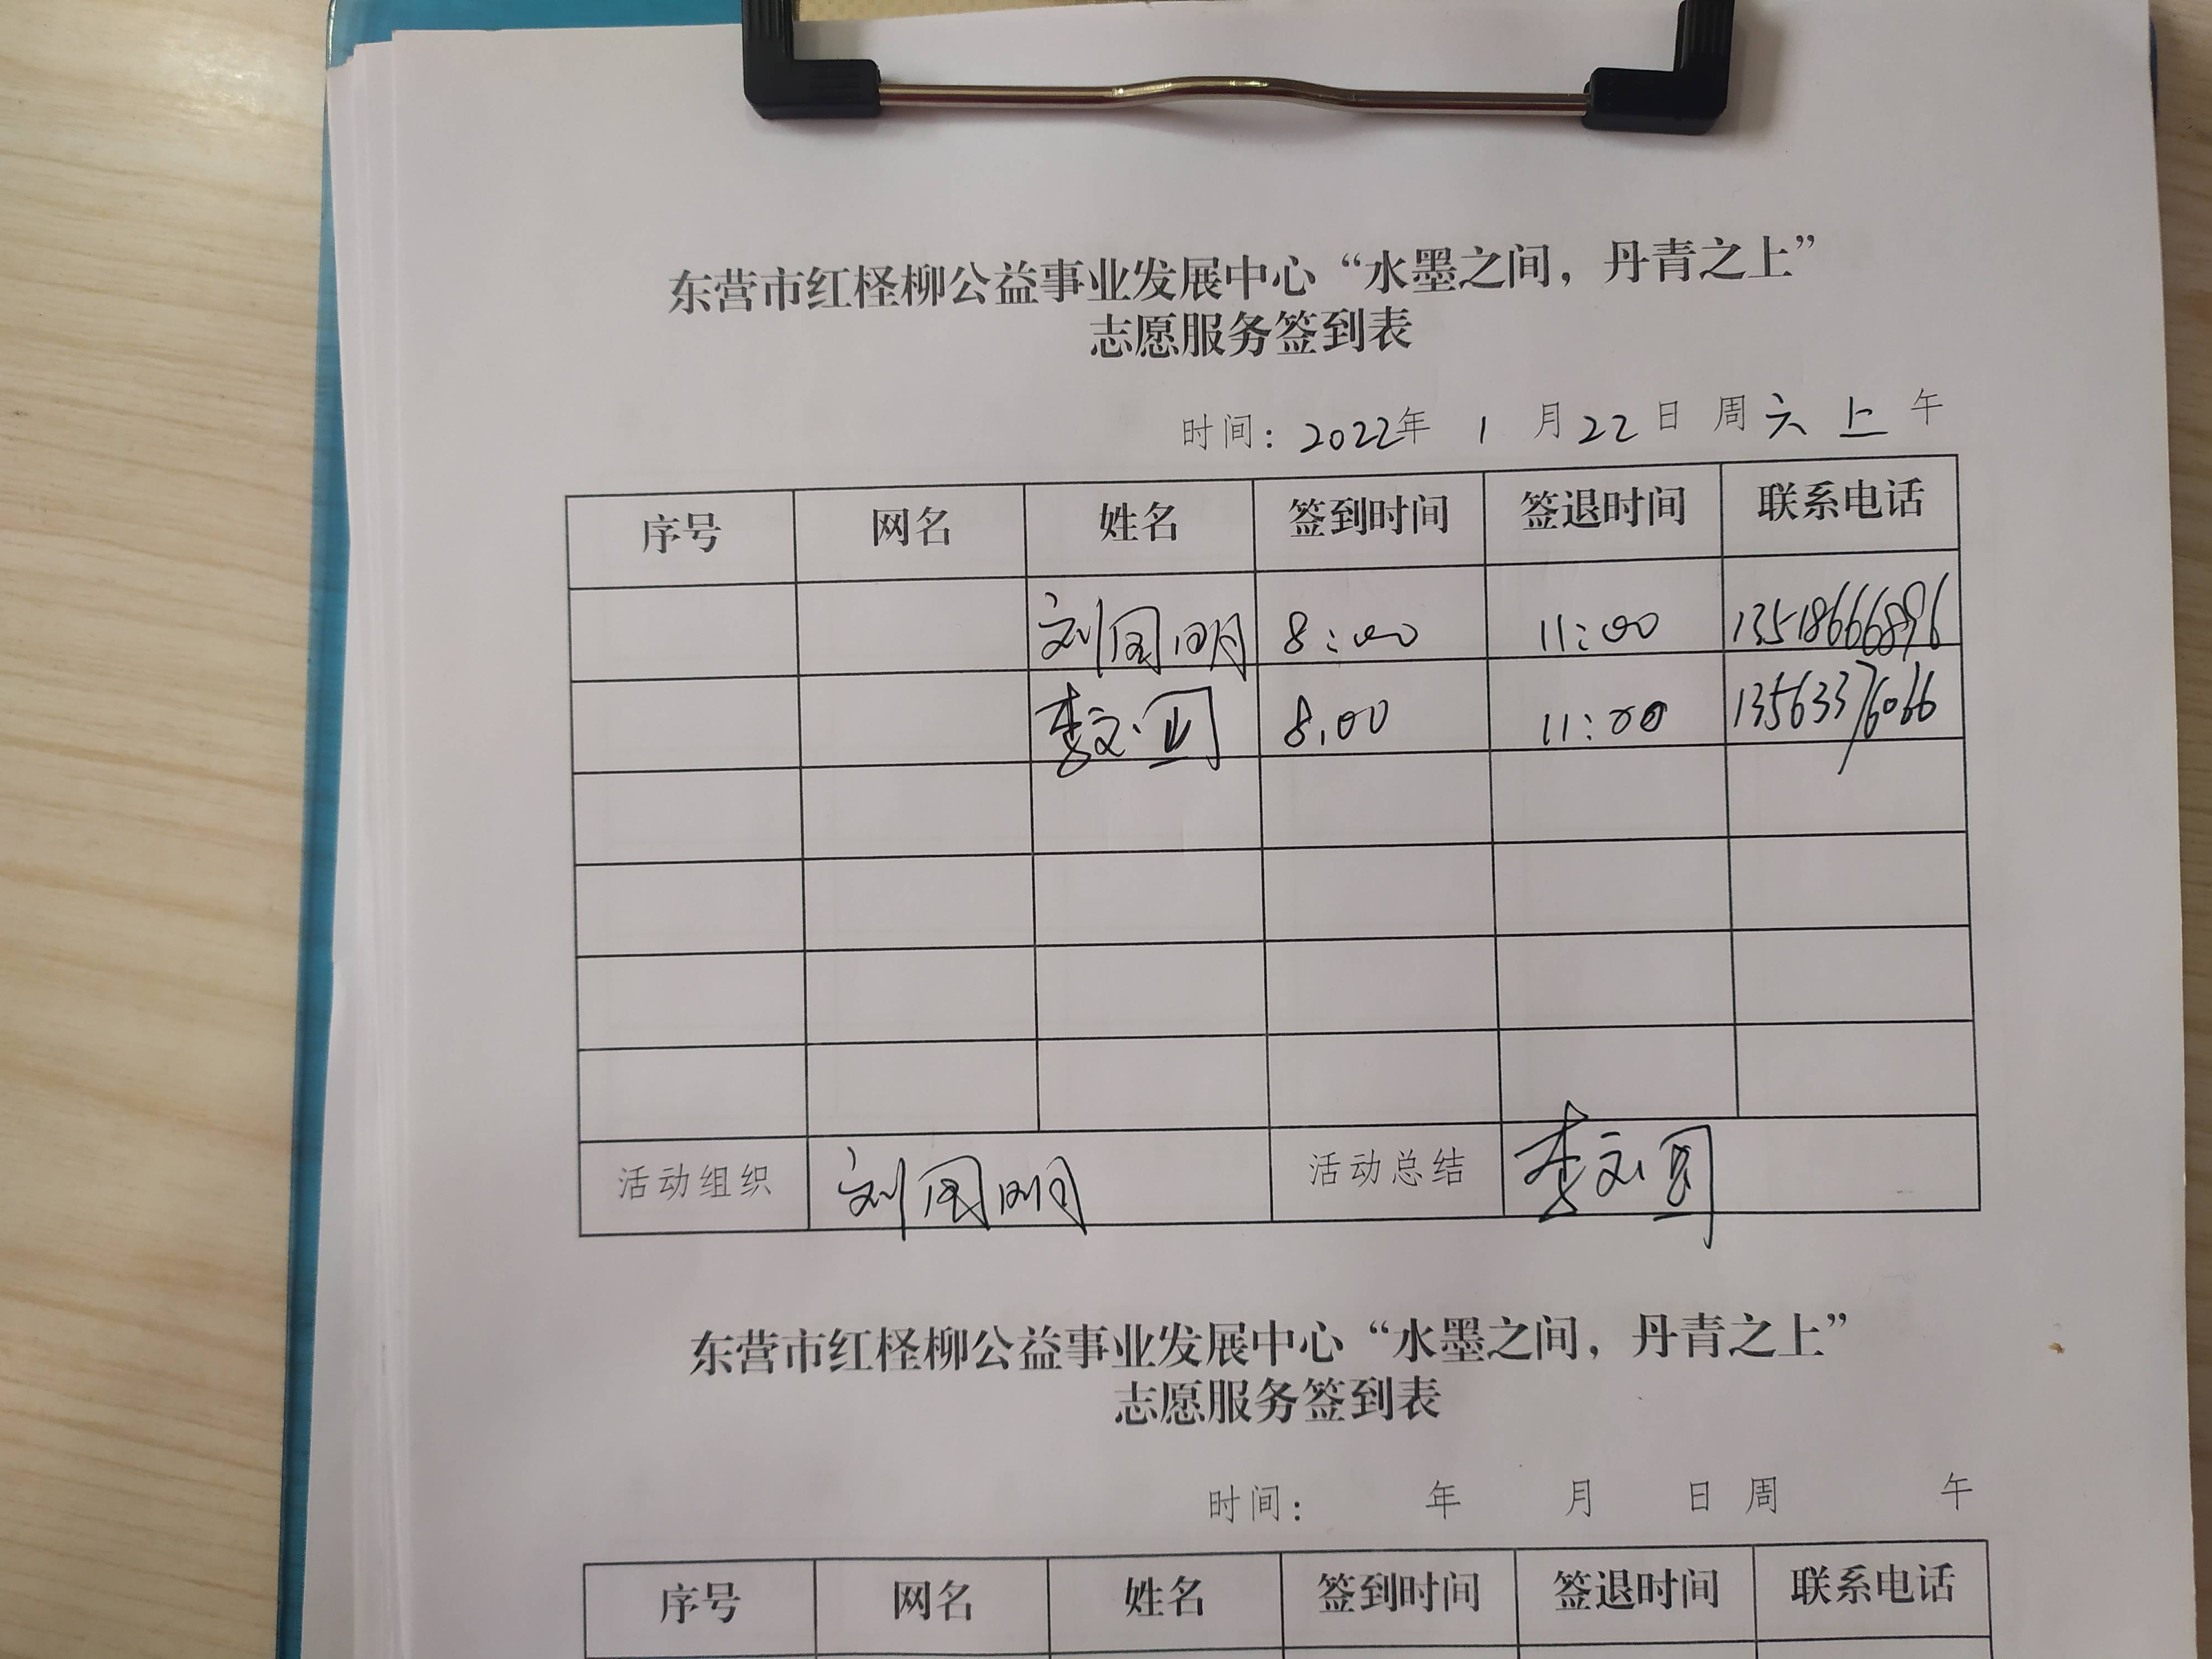 东营市红柽柳公益事业发展中心“水墨之间，丹青之上”
志愿服务签到表
时间：2022年 1 月 22 日 周六 上 午
序号 网名 姓名 签到时间 签退时间 联系电话
刘国明 8:00 11:00 13518666896
李文 8.00 11:00 13563376066
活动组织 刘国明 活动总结 李文
东营市红柽柳公益事业发展中心“水墨之间，丹青之上”
志愿服务签到表
时间： 年 月 日 周 午
序号 网名 姓名 签到时间 签退时间 联系电话